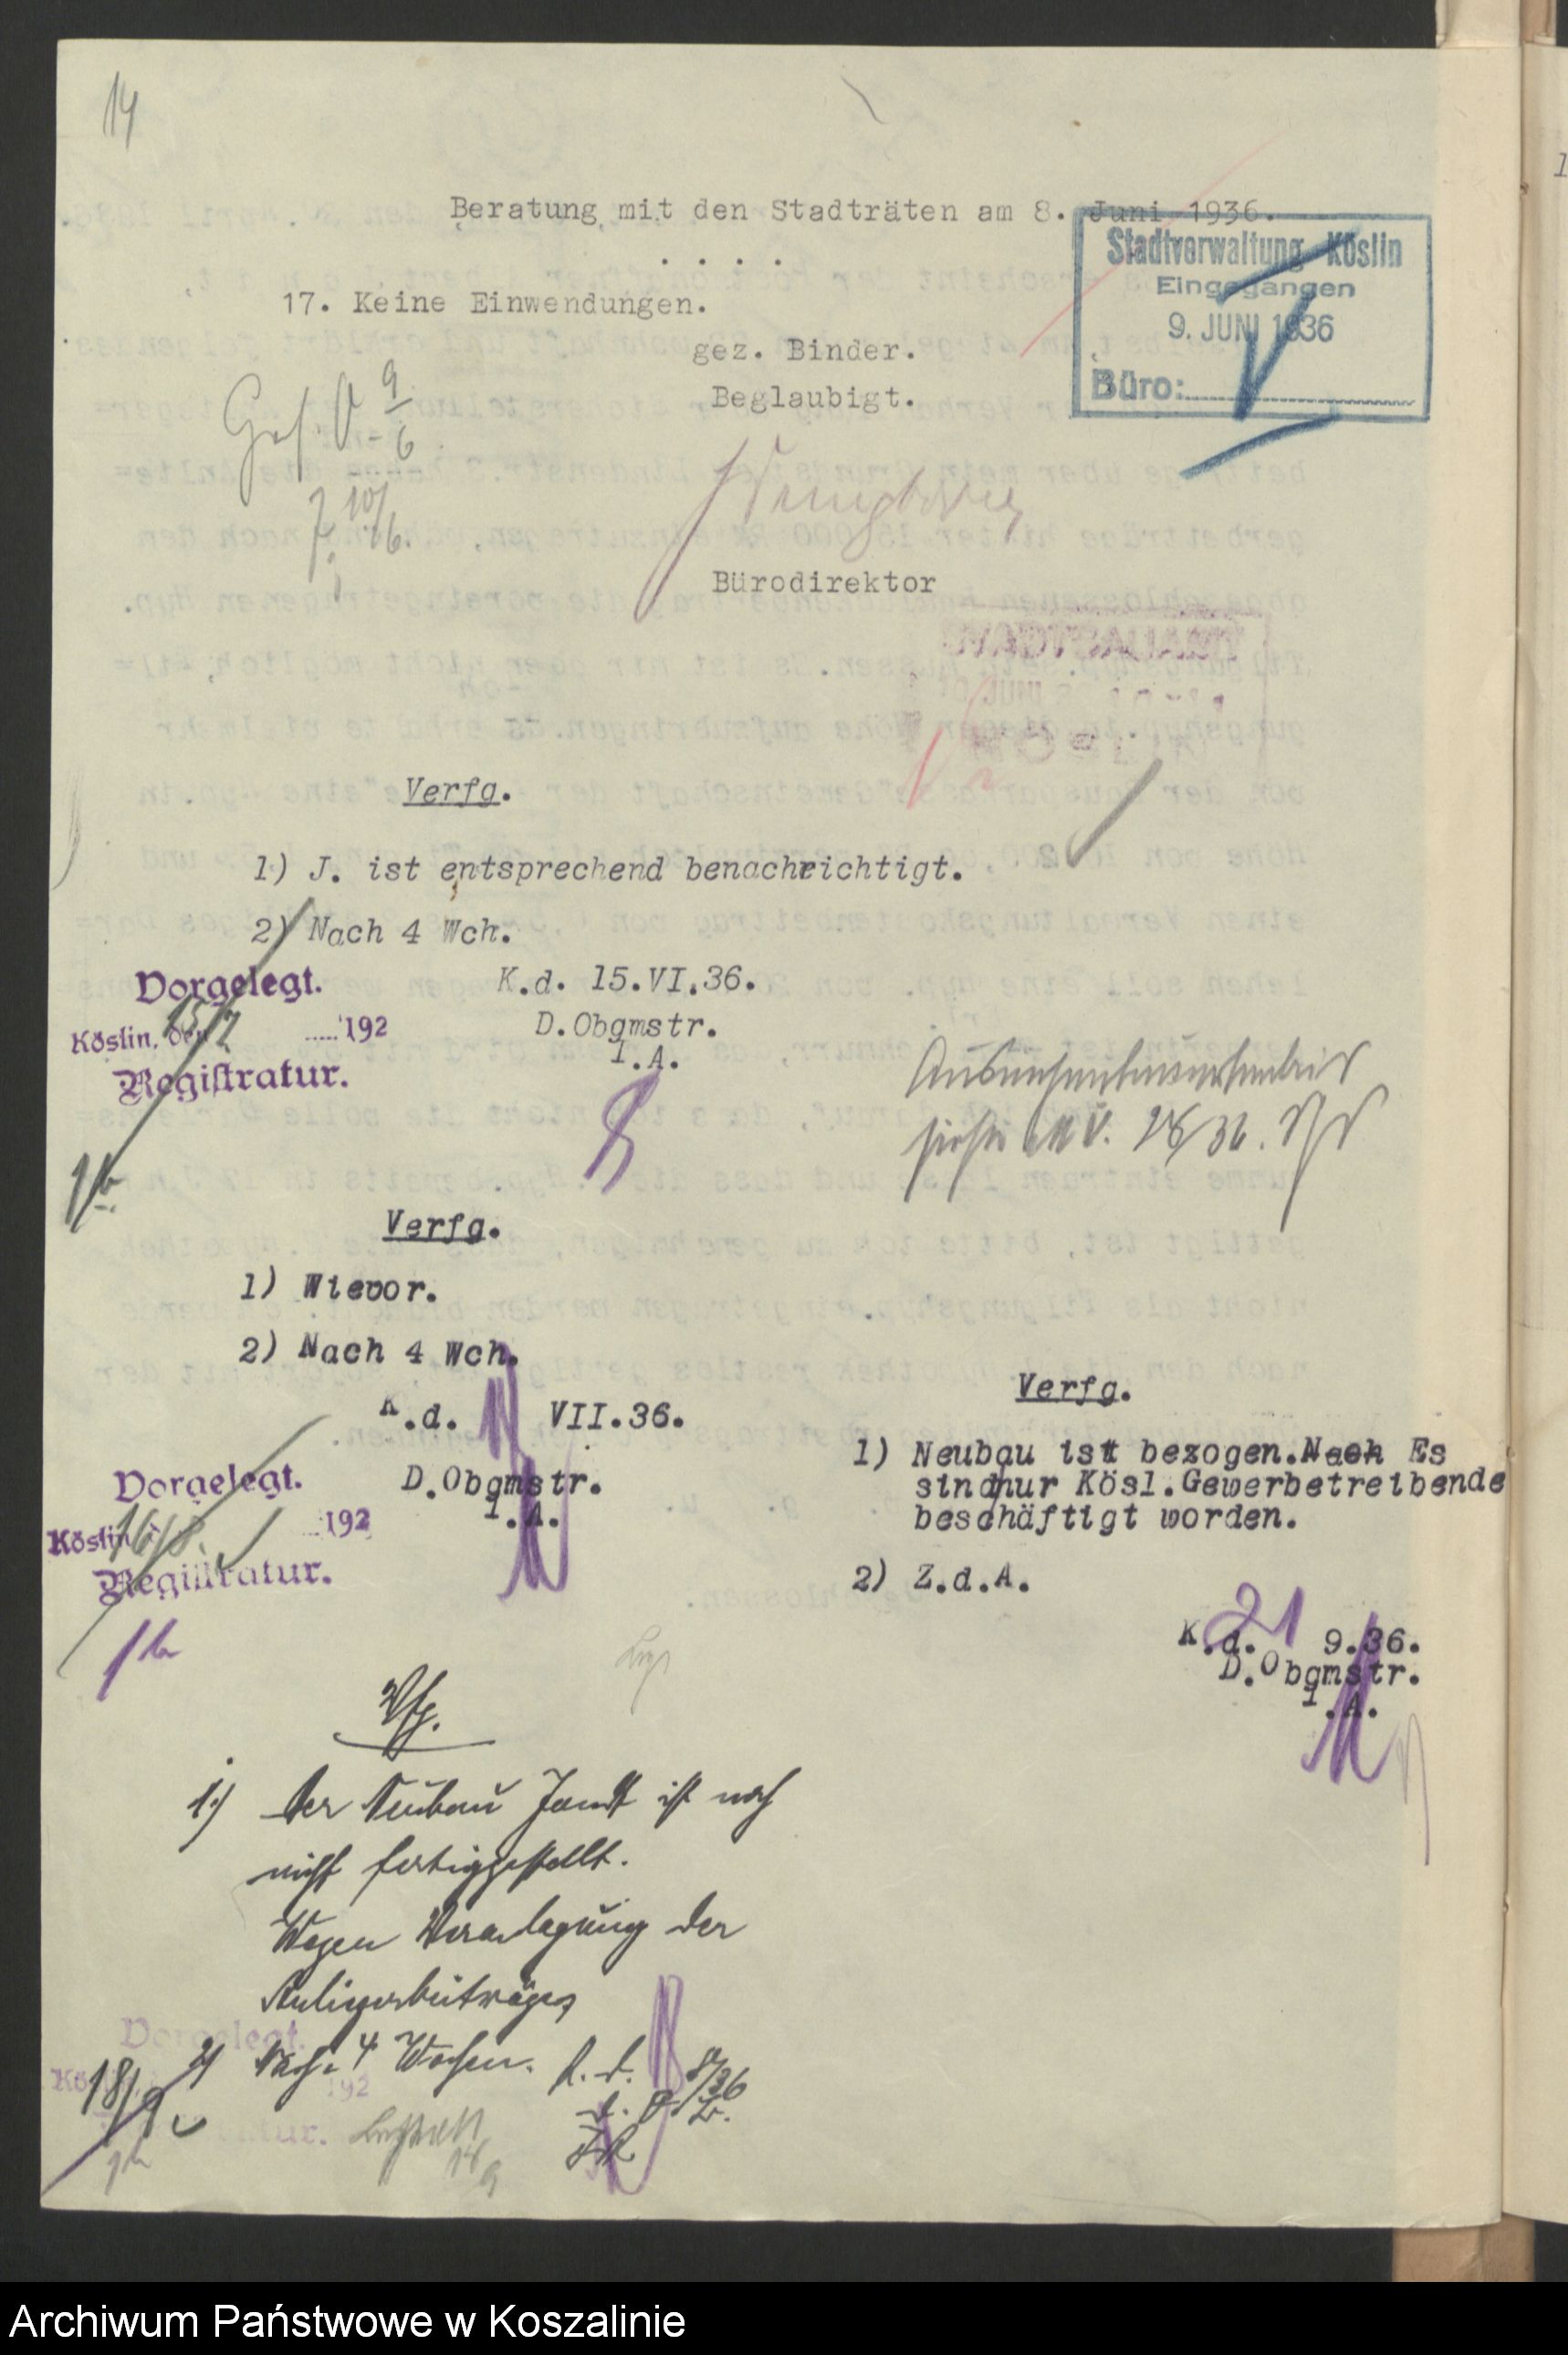 14
Beratung mit den Stadträten am 8. Juni 1936.
. . . .
Stadtverwaltung Köslin
Eingegangen
9. JUNI 1936
Büro:
17. Keine Einwendungen.
gez. Binder.
Beglaubigt.
Ges. 9/6
10/6.
Bürodirektor
Verfg.
1) J. ist entsprechend benachrichtigt.
2) Nach 4 Wch.
K.d. 15.VI.36.
D.Obgmstr.
I.A.
Vorgelegt.
Köslin, den 15/7 192
Registratur.
Verfg.
1) Wievor.
2) Nach 4 Wch.
K.d. VII.36.
D.Obgmstr.
I.A.
Vorgelegt.
Köslin 16/8. 192
Registratur.
Verfg.
1) Neubau ist bezogen. Nach Es
sind nur Kösl.Gewerbetreibende
beschäftigt worden.
2) Z.d.A.
K.d. 21 9.36.
D.Obgmstr.
I.A.
Vfg.
1.) Der Neubau Jandt ist noch
nicht fertiggestellt.
Wegen Veranlagung der
Anliegerbeiträge
2) Nach 4 Wochen.
K. d. 8/36
Vorgelegt.
18/9 192
Archiwum Państwowe w Koszalinie